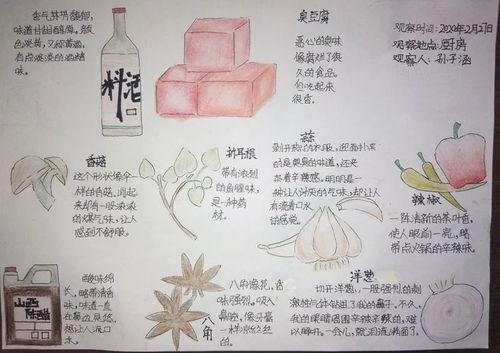 香气非常馥郁,
味道甘甜醇厚。颜
色淡黄,又称黄酒,
有点淡淡的酒精
味。
料酒
臭豆腐
恶心的臭味
像腐烂了很
久的食品。
但吃起来
很香。
观察时间:2020年2月27日
观察地点:厨房
观察人:孙子涵
香菇
这个形状像伞一
样的香菇,闻起
来却有一股浓浓
的煤气味,让人
感到不舒服。
折耳根
带有浓烈
的鱼腥味,
是一种药
材。
蒜
剥开蒜的衣服,迎面扑来
的是臭臭的味道,还夹
杂着辛辣感。明明是一
种让人讨厌的气味,却让人
有流着口水
的感觉。
辣椒
一阵清新的茶叶香,
使人眼前一亮,略
带点火锅的辛辣味。
山西
陈醋
酸味绵
长,略带清香
味,味道一直
在鼻边晃悠,
想让人流口
水。
八角
八角莲花,香
味强烈。吸入
鼻腔,像牙膏
一样凉丝丝
的。
洋葱
切开洋葱,一股强烈的刺
激性气体钻进了我的鼻子。不久,
我的眼睛周围辛辣辛辣的,难
以睁开。一会儿,就泪流满面了。